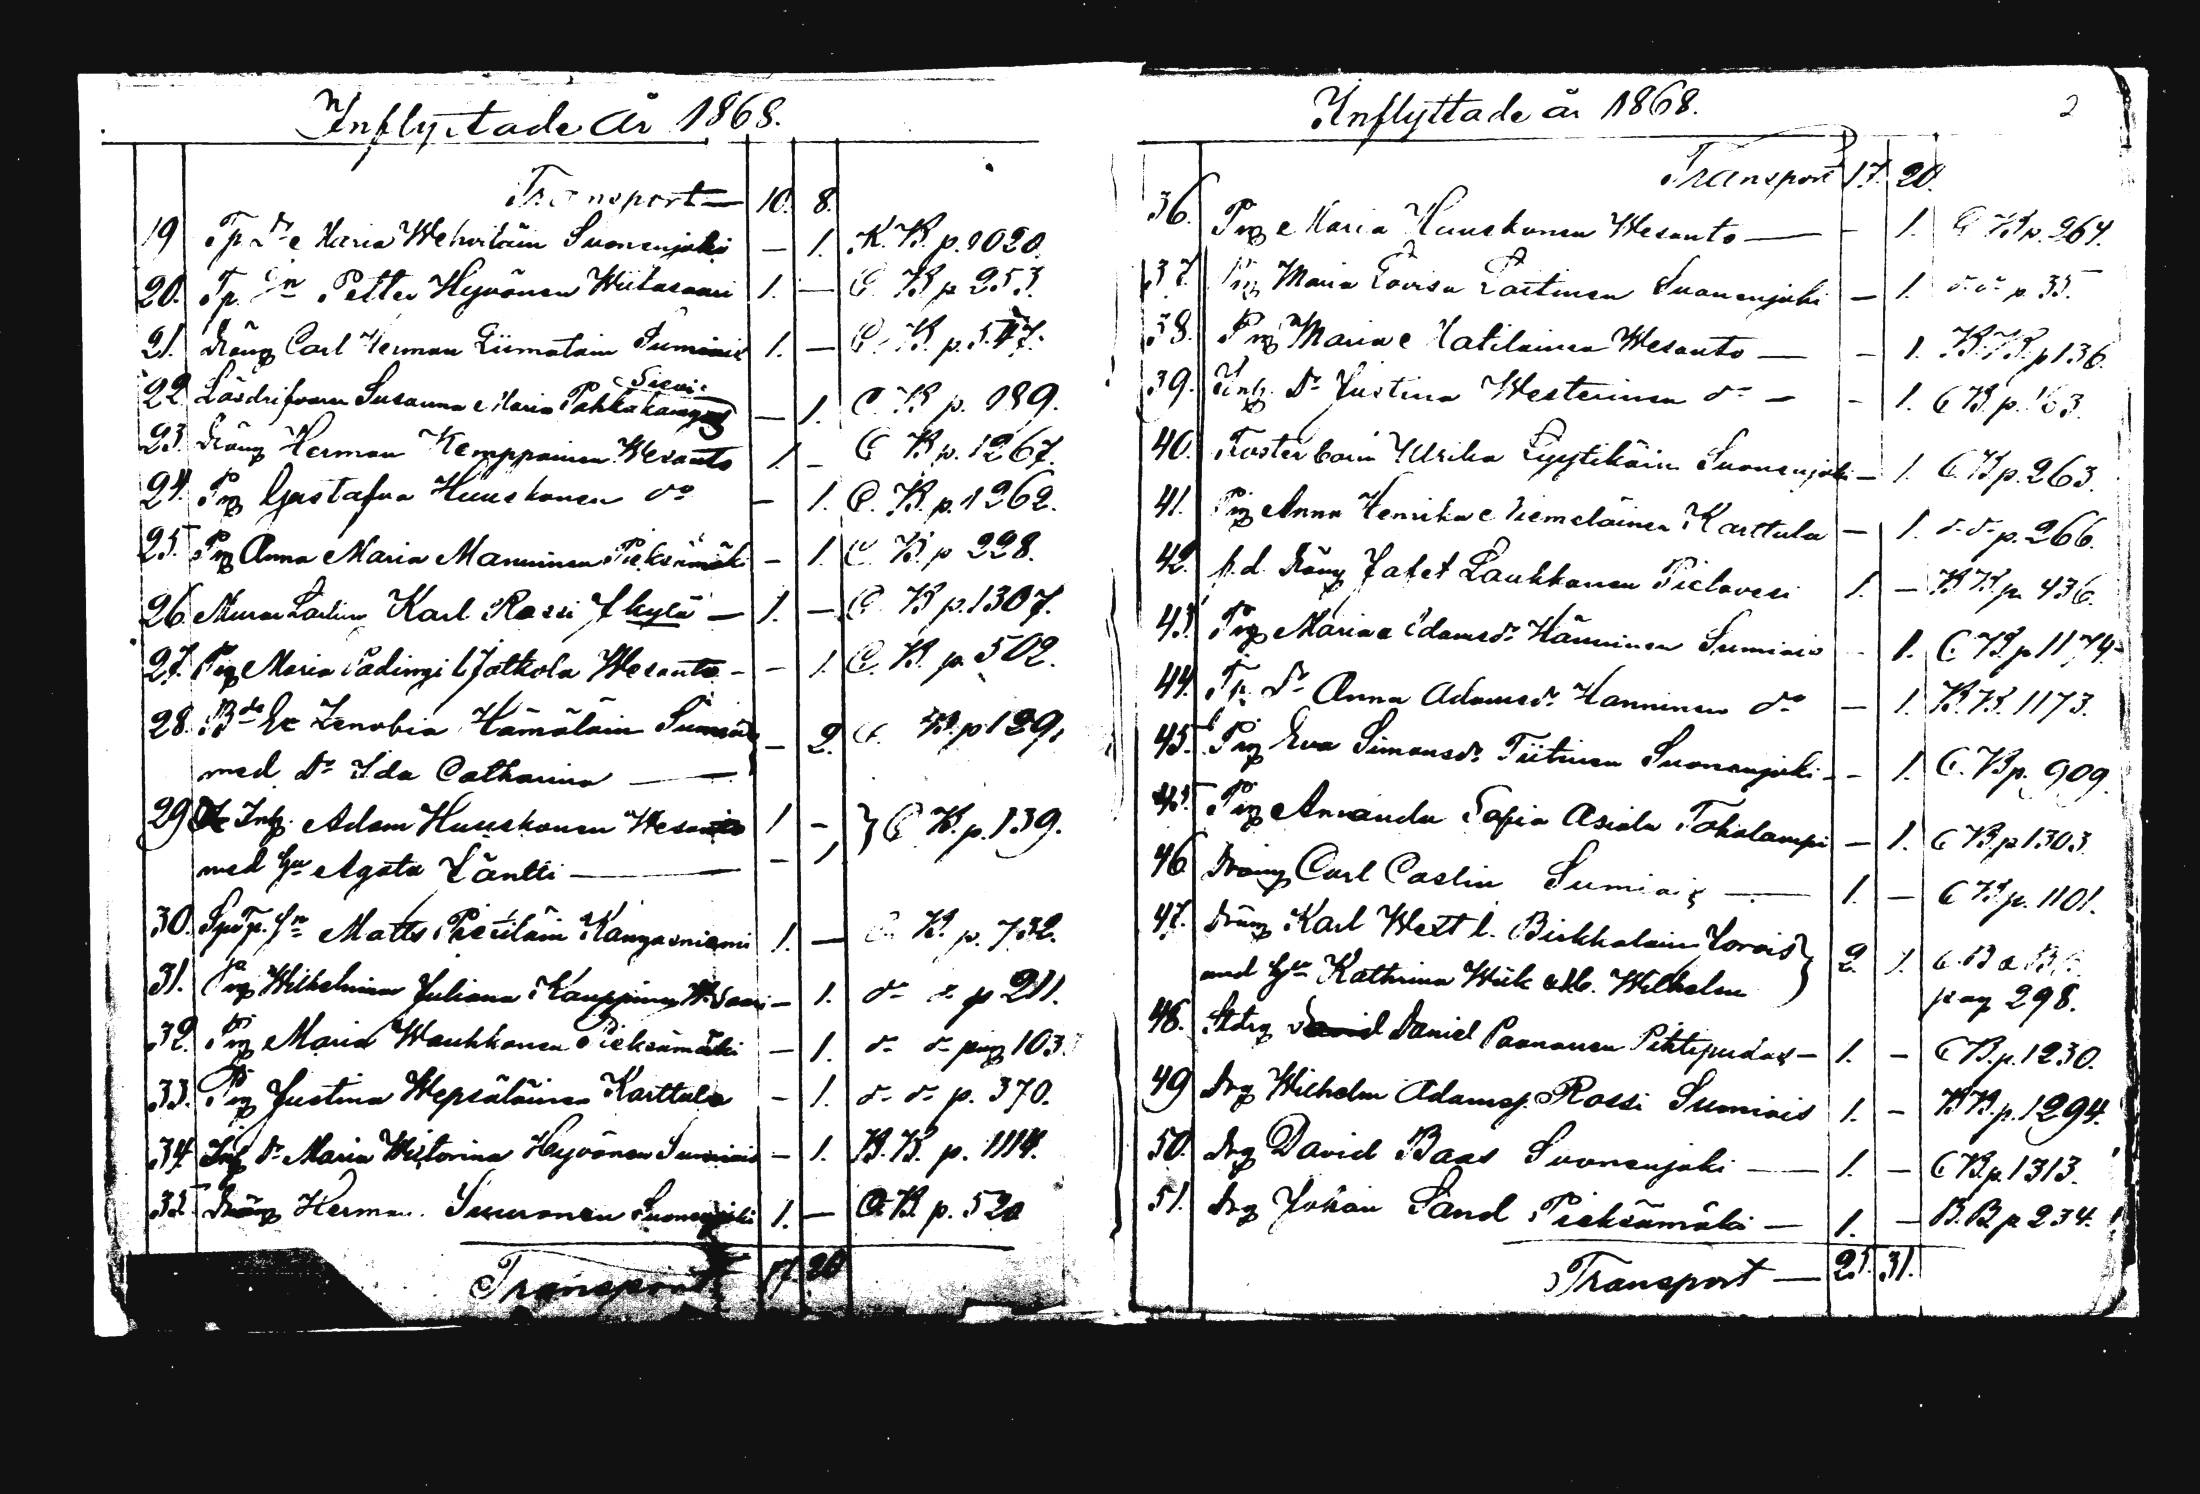 Inflyttade år 1868.
Transport — 10. 8.
19 Tp Dr Maria Wehviläin Suonenjoki — 1. K. B. p. 1020.
20. Tp Sn Petter Hyvönen Wiitasaari 1. — C. B p 253.
21. Dräng Carl Herman Liimatain Sumiais 1. — C. B. p. 547.
Sievi
22 Lösdrifvaren Susanna Maria Pahkakangas — 1. C. B p. 189.
23. Dräng Herman Kemppainen Wesanto 1. — C B p. 1267.
24. Pig Gustafva Huuskonen do — 1. C. B. p. 1262.
25. Pig Anna Maria Manninen Pieksämäki — 1. C. B. p 228.
26. Karl Rossi Jkylä — 1. — C. B p. 1307.
27. Pig Maria Jatkola Wesanto — — 1. C. B. p. 502.
28. Zenobia Hämäläin Sumiais — 2. C. B. p 129,
med Dr Ida Catharina —
29 Inh. Adam Huuskonen Wesanto 1 — } C B. p. 139.
med Hu Agata Jäntti — — 1
30. Matts Pieniläin Kangasniemi 1. — C. B. p. 732.
31. Pig Wilhelmina Juliana Kauppinen W. Saari — 1. do do p 211.
32. Pig Maria Waukkonen Pieksämäki — 1. do do pag 103.
33. Pig Justina Wepsäläinen Karttula — 1. do do p. 370.
34. Inh Dr Maria Wistorina Hyvönen Sumiais — 1. B. B. p. 1114.
35. Dräng Herman Suuronen Suonenjoki 1. — C. B. p. 520
Transport 17. 20
Inflyttade år 1868. 2
Transport 17. 20.
36. Pig Maria Huuskonen Wesanto — — 1. C B p. 264.
37. Pig Maria Lovisa Lastinen Suonenjoki — 1. do do p. 35.
38. Pig Maria Natilainen Wesanto — — 1. B. B. p 136.
39. Inh. Dr Justina Westerinen do — — 1. C B. p. 163.
40. Fosterbarn Ulrika Lyytikäin Suonenjoki — 1. C. B p. 263.
41. Pig Anna Henrika Niemeläinen Karttula — 1. do do p. 266.
42. f. d. Dräng Jafet Laukkanen Pielavesi 1. — B B. p. 436.
43. Pig Maria Adamsdr Hänninen Sumiais — 1. C B p 1174.
44. Tp. Dr Anna Adamsdr Hanninen do — 1. B. B. 1173.
45. Pig Eva Simonsdr Tiitinen Suonenjoki — — 1. C. B p. 909.
45. Pig Amanda Sofia Asiala Toholampi — 1. C B. p 1303.
46 Dräng Carl Castin Sumiais — 1. — C B. p. 1101.
47. Dräng Karl West l. Birkkalain Jorois } 2. 1. C. B a
med Hu Kathrina Wiik o. Wilhelm pag 298.
48. Daniel Paananen Pihtipudas — 1. — C B. p. 1230.
49 Drg Wilhelm Adamsf. Rossi Sumiais 1. — B B. p. 1294.
50. Drg David Baas Suonenjoki — 1. — C B. p. 1313.
51. Drg Johan Sand Pieksämäki — 1. — B. B p 234.
Transport — 25. 31.